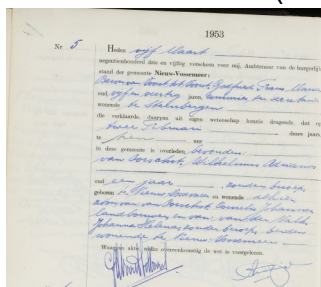 1953
Nr. 5 Heden vijf Maart
negentienhonderd drie en vijftig verscheen voor mij, Ambtenaar van de burgerlijke
stand der gemeente Nieuw-Vossemeer:
oud vijf en veertig jaren,
wonende te Steenbergen
die verklaarde, daarvan uit eigen wetenschap kennis dragende, dat op
twee Februari dezes jaars
te tien uur
in deze gemeente is overleden, gevonden
van Oorschot, Wilhelmus Adrianus
oud een jaar, zonder beroep
geboren te Nieuw Vossemeer en wonende alhier
zoon van van Oorschot, Johannes
landbouwer en van van der
Johanna Helena, zonder beroep, beiden
wonende te Nieuw Vossemeer
Waarvan akte, welke overeenkomstig de wet is voorgelezen.